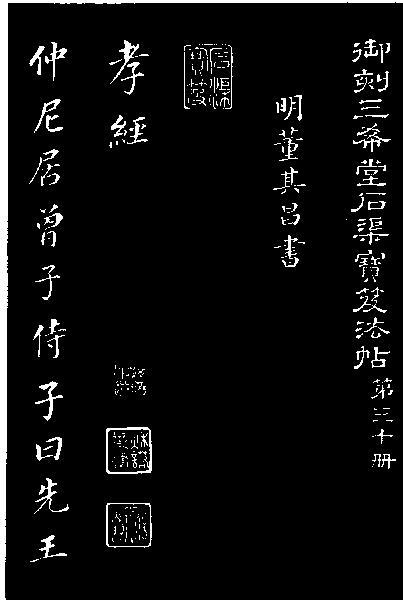 御刻三希堂石渠寶笈法帖 第三十冊
明董其昌書
石渠寶笈
孝經
仲尼居曾子侍子曰先王